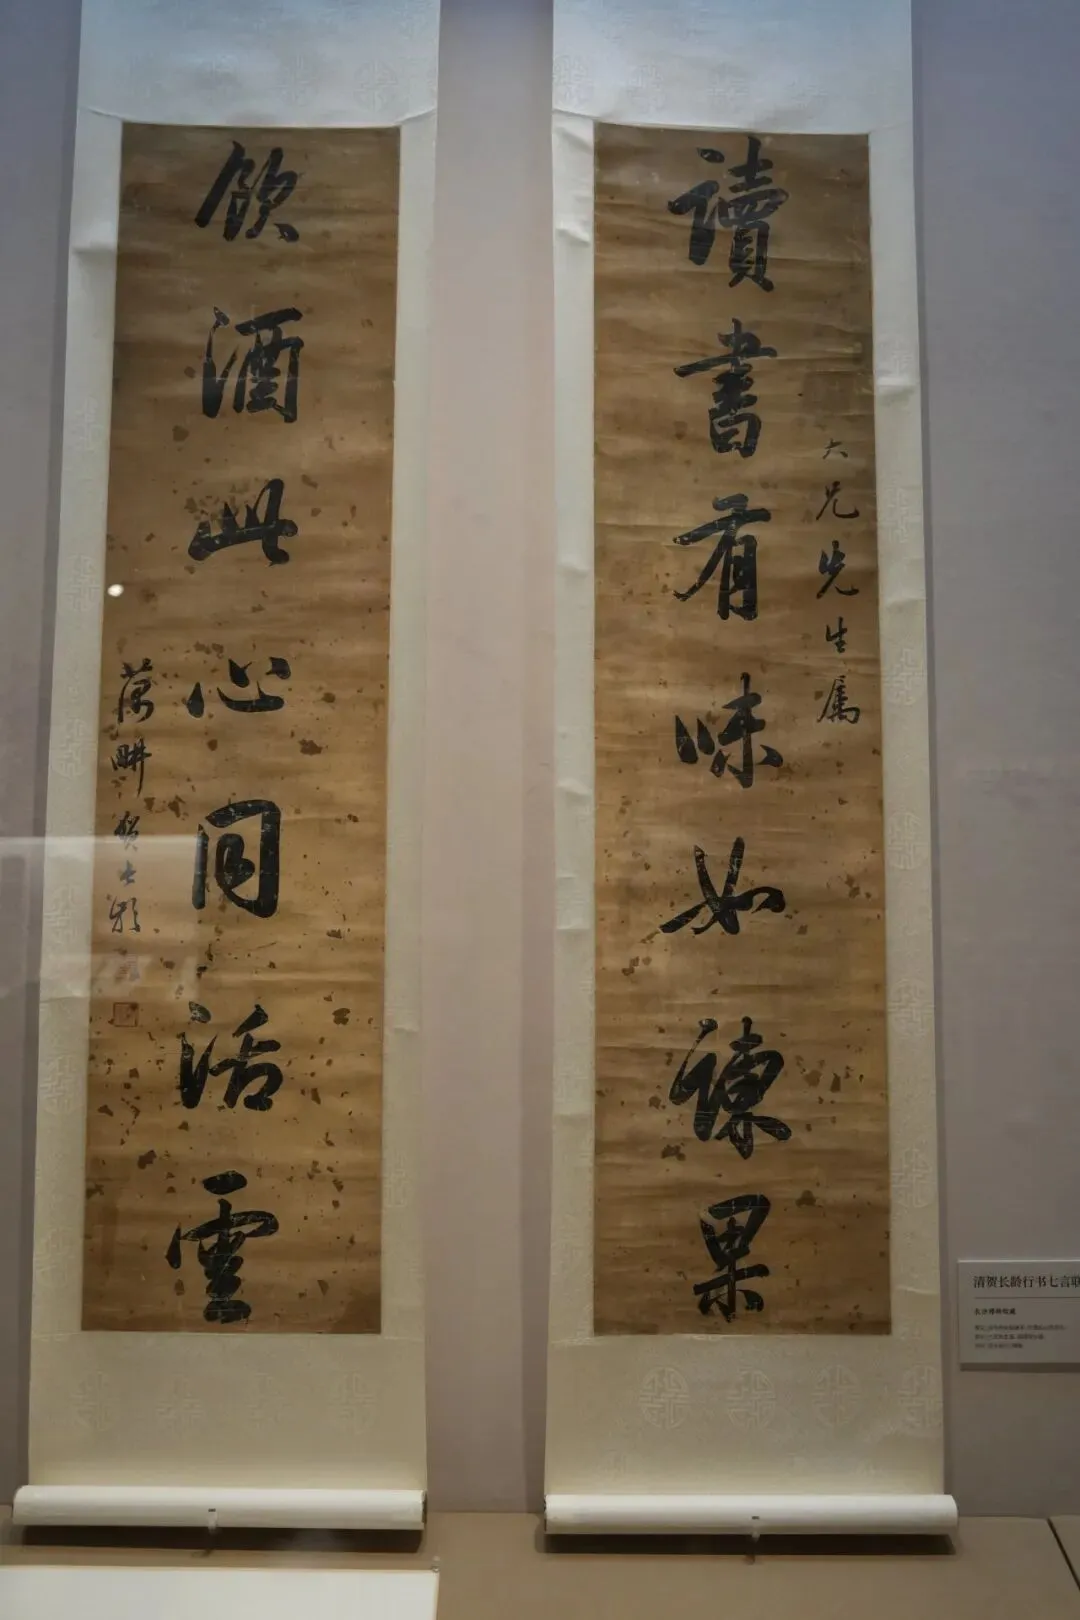 讀書有味如諫果
大兄先生屬
飲酒此心同活雲
藕畊賀長齡
清贺长龄行书七言联
长沙博物馆藏